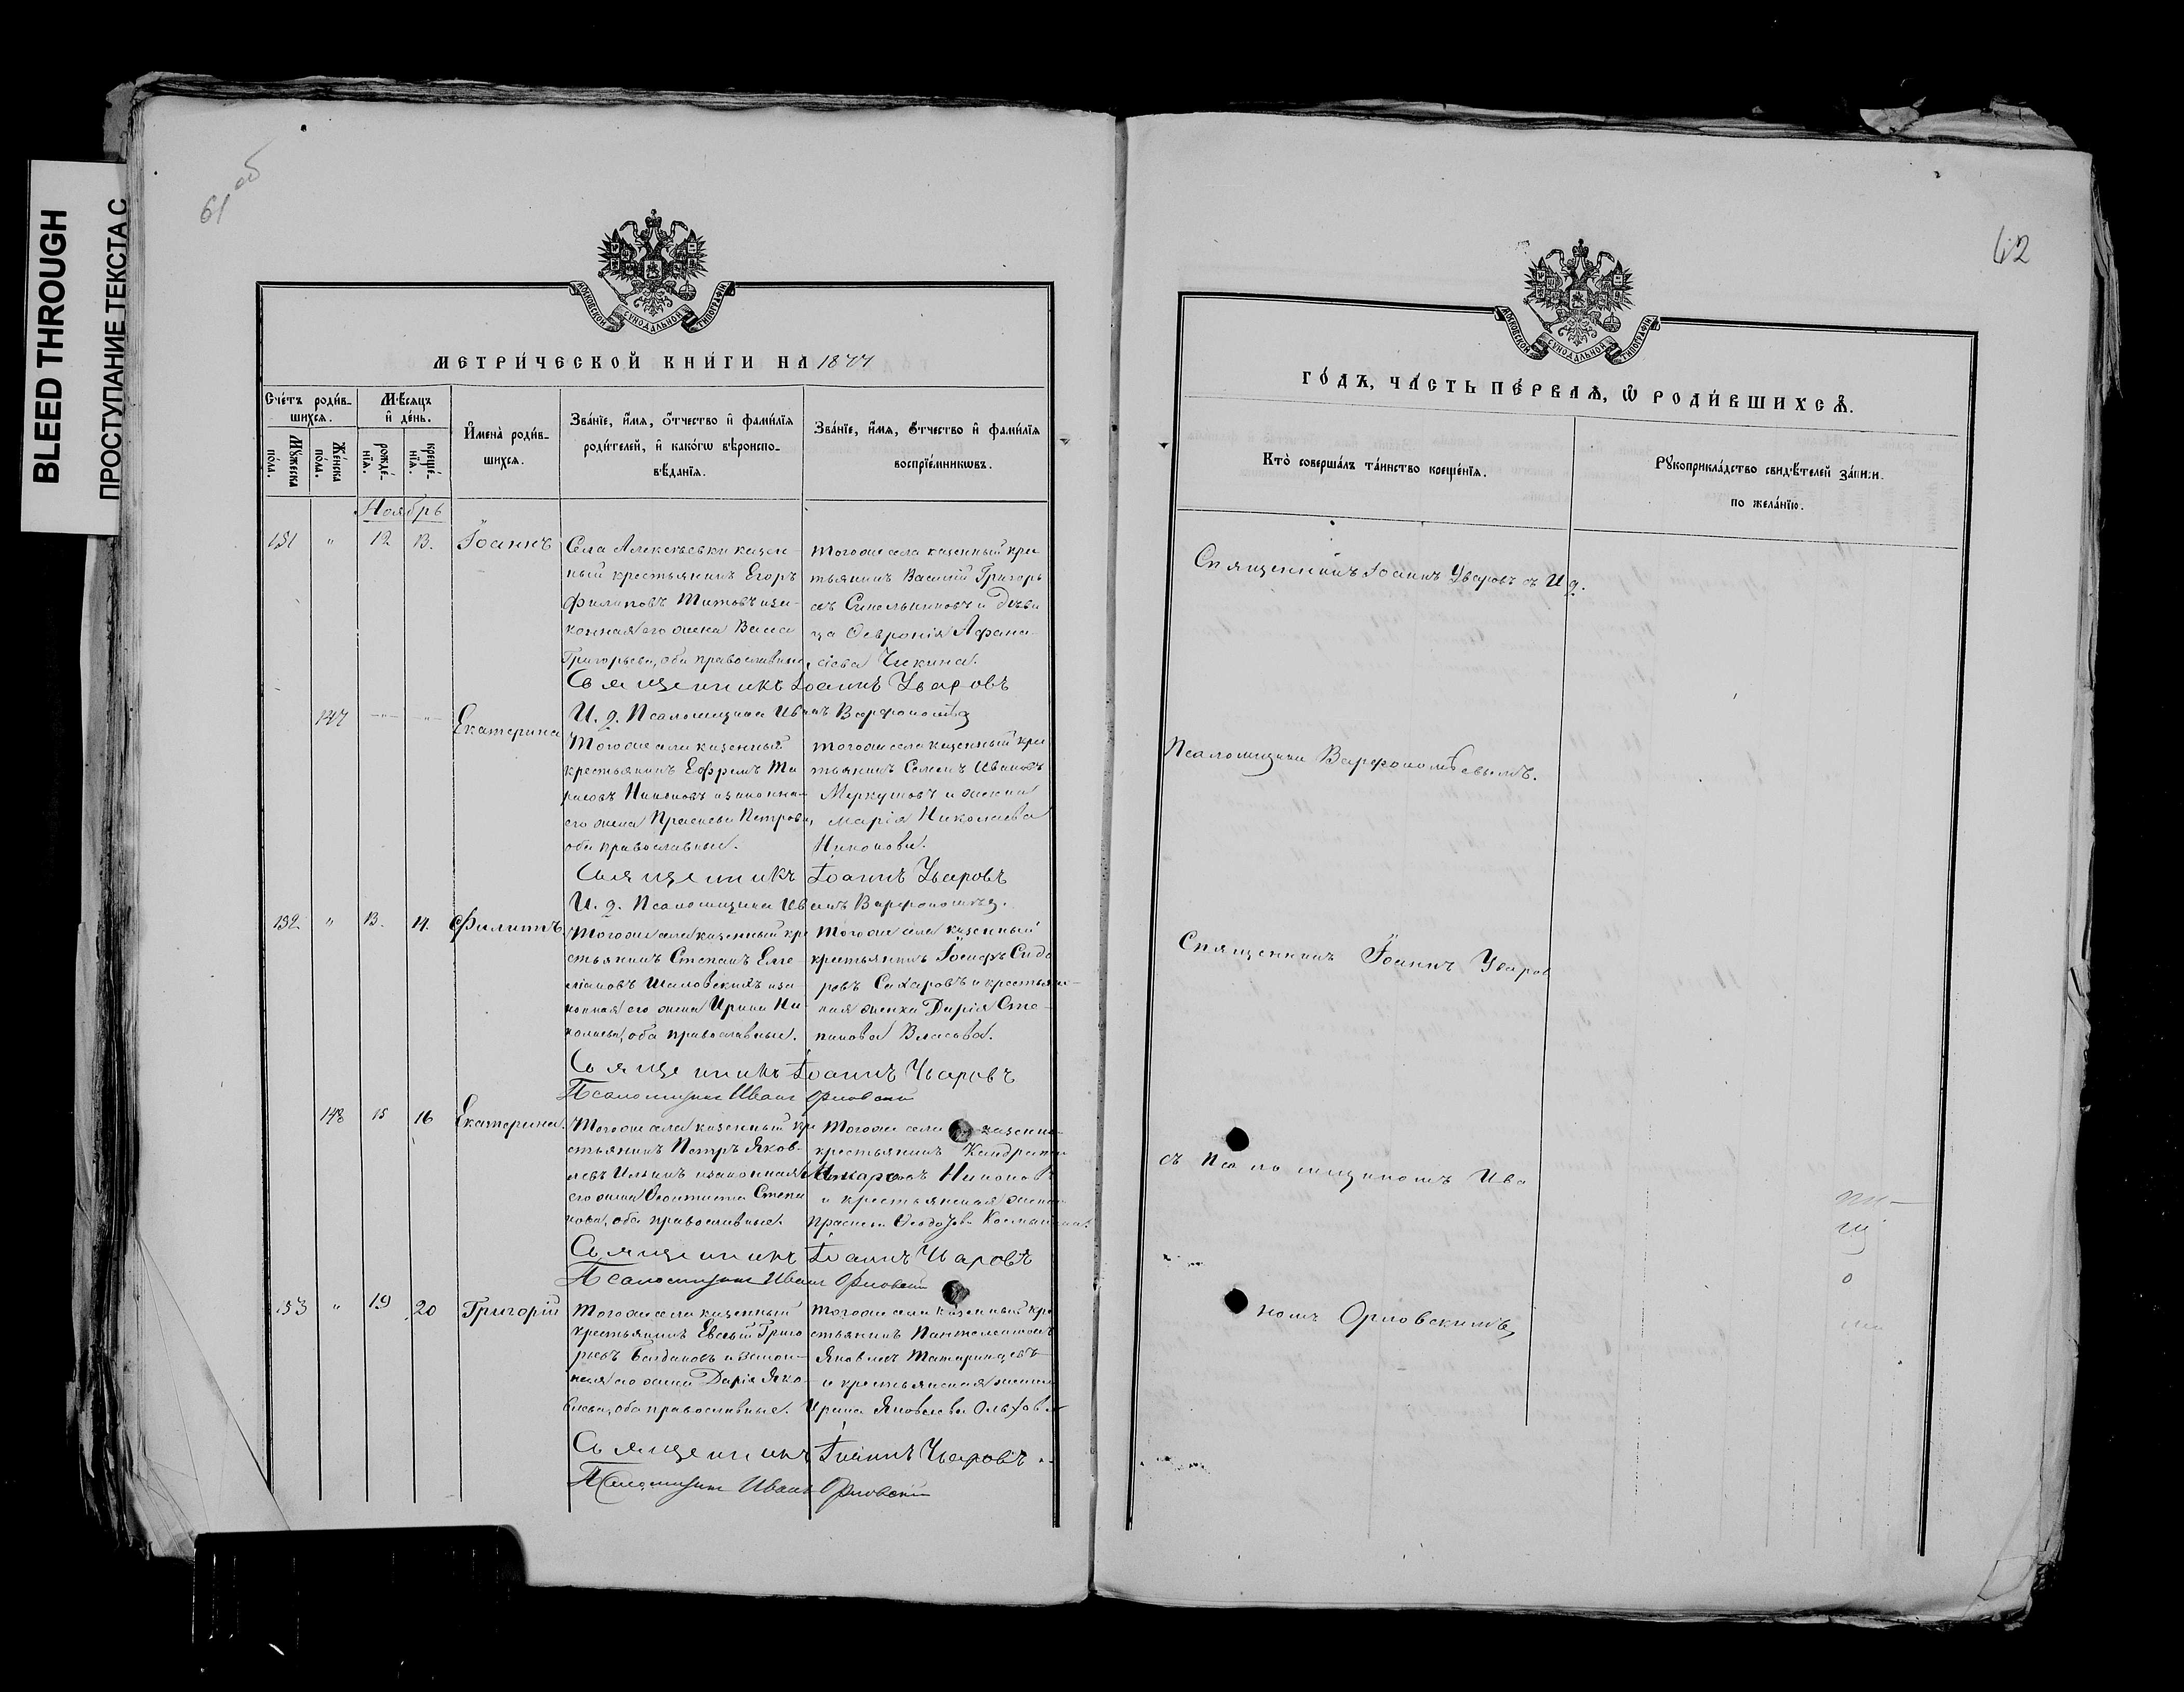 BLEED THROUGH
ПРОСТУПАНИЕ ТЕКСТА С
61 об
МОСКОВСКОЙ СУНОДАЛЬНОЙ ТИПОГРАФІИ
МЕТРИ́ЧЕСКОЙ КНИ́ГИ НА 1877
Сче́тъ роди́в-
шихся.
Мѣ́сяцъ
и де́нь.
Имена̀ роди́в-
шихся.
Зва́нїе, и́мя, о́тчество и фами́лїя
роди́телей, и како́гѡ вѣроиспо-
вѣ́данїя.
Зва́нїе, и́мя, о́тчество и фами́лїя
воспрїе́мникѡвъ.
Мꙋжеска
по́ла.
Же́нска
по́ла.
рожде́-
нїя.
креще́-
нїя.
Ноябрь
151 " 12 13. Іоаннъ
Села Алексѣевки казен-
ный крестьянинъ Егоръ
Филиповъ Титовъ иза-
конная его жена Васса
Григорьева, оба православные,
тогоже села казенный кре
тьянинъ Василій Григорь
евъ Синельниковъ и дѣви
ца Февронія Афана-
сіева Чикина.
Священникъ Іоаннъ Уваровъ
И. д. Псаломщика Иванъ Варфоломѣев
147 -"- -"- Екатерина
Тогоже села казенный
крестьянинъ Ефремъ Та
расовъ Никоновъ изаконна-
его жена Праскева Петрова,
оба православные.
тогоже села казенный кре
тьянинъ Семенъ Ивановъ
Меркуловъ и
Марія Николаева
Никонова.
Священникъ Іоаннъ Уваровъ
И. д. Псаломщика Иванъ Варфоломѣев.
152 " 13. 14. Филипъ.
Тогоже села казенный кре
стьянинъ Степанъ Еме
ліановъ Шаловскихъ иза-
конная его жена Ирина Ни-
колаева, оба православные.
Тогоже села казенный
крестьянинъ Іосифъ Сидо
ровъ Сахаровъ и крестьян-
ская женка Дарія Сте-
панова Власова.
Священникъ Іоаннъ Уваровъ
Псаломщикъ Иванъ Орловскій
148 15 16 Екатерина.
Тогоже села казенный кре
стьянинъ Петръ Яков-
левъ Ильинъ изаконная
его жена Феоктиста Степа
нова, оба православные.
Тогоже села казенно-
крестьянинъ Кондратій
Макаровъ Никонов
и крестьянская женка
Праскева Феодо
Священникъ Іоаннъ Уваровъ
Псаломщикъ Иванъ Орловскій
153 " 19 20 Григорій
Тогоже села казенный
крестьянинъ Евсѣй Григо
рьевъ Богдановъ изакон-
ная его жена Дарія Яко-
влева, оба православные.
Тогоже села казенный кре
стьянинъ Пантелеймонъ
Яковлевъ Татаринцевъ
и крестьянская женка
Ирина Яковлева Ольхов
Священникъ Іоаннъ Уваровъ
Псаломщикъ Иванъ Орловскій
62
МОСКОВСКОЙ СУНОДАЛЬНОЙ ТИПОГРАФІИ
ГО́ДЪ, ЧА́СТЬ ПЕ́РВАЯ, Ѡ РОДИ́ВШИХСЯ.
Кто̀ соверша́лъ та́инство креще́нїя.
Рꙋкоприкла́дство свидѣ́телей за́писи
по жела́нїю.
Священникъ Іоаннъ Уваровъ съ И. д.
Псаломщика Варфоломѣевымъ.
Священникъ Іоаннъ Уваров
съ Псаломщикомъ Ива
номъ Орловскимъ,